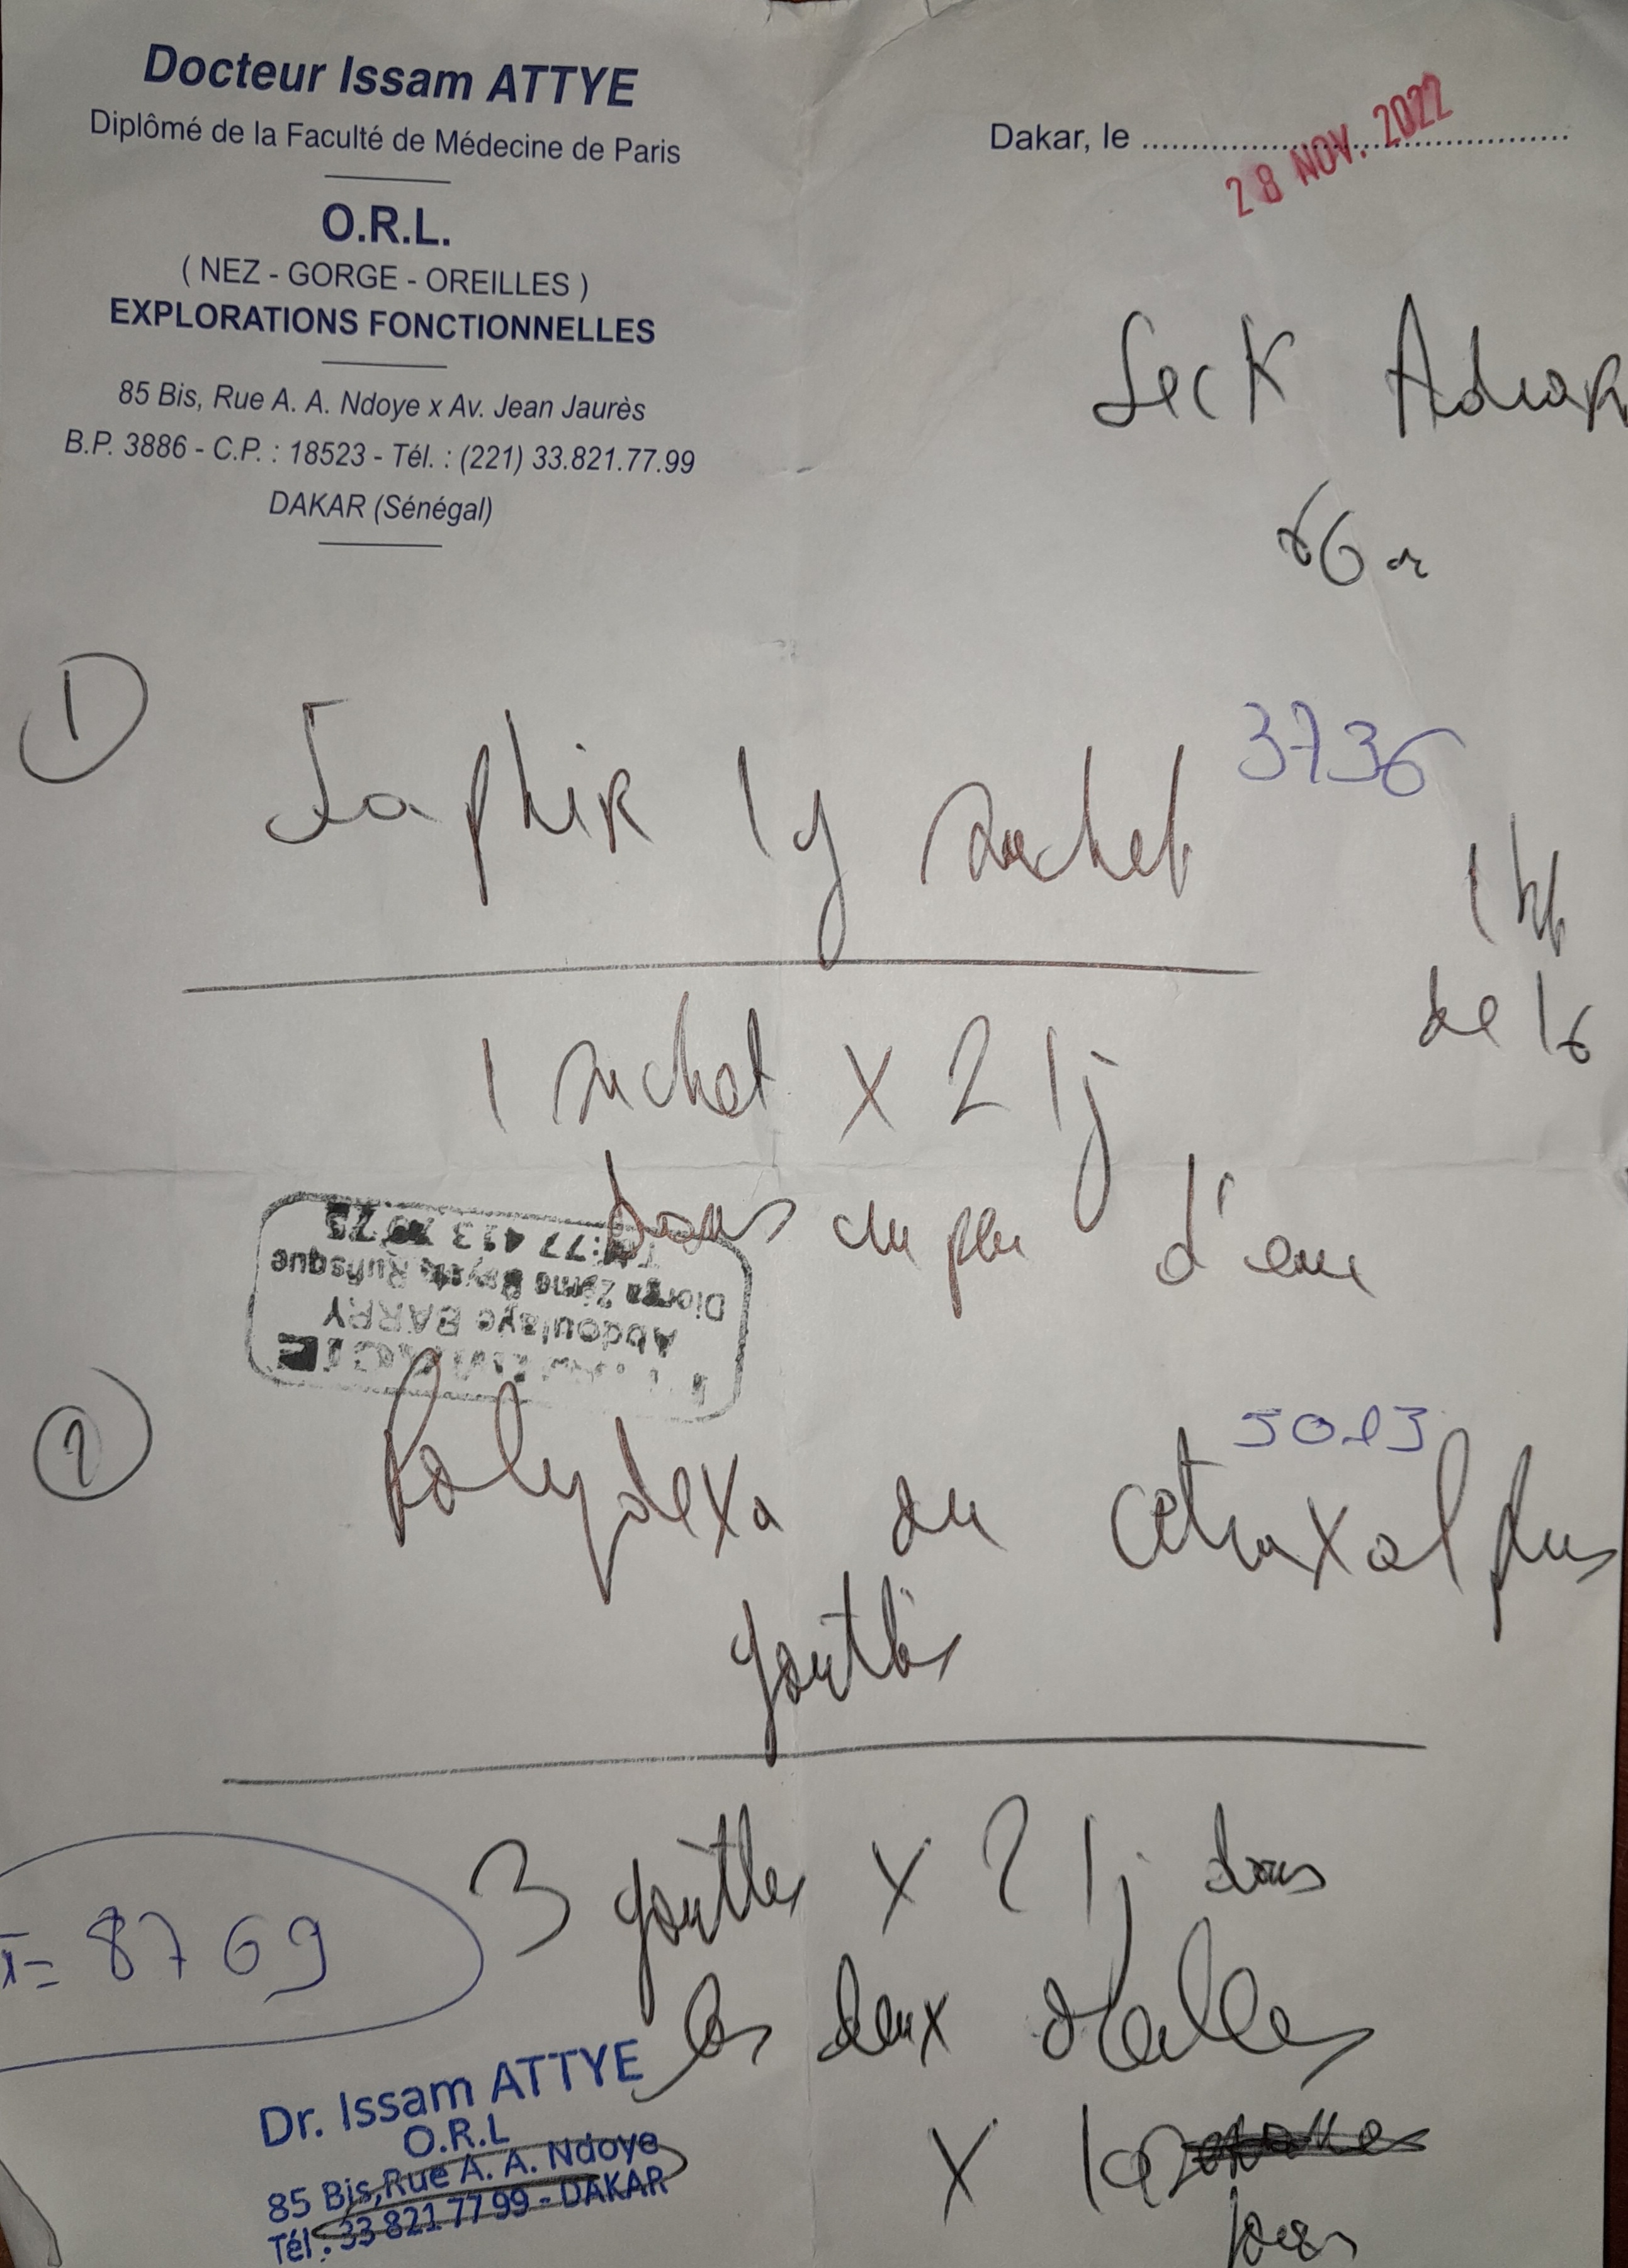 Docteur Issam ATTYE
Diplômé de la Faculté de Médecine de Paris
O.R.L.
( NEZ - GORGE - OREILLES )
EXPLORATIONS FONCTIONNELLES
85 Bis, Rue A. A. Ndoye x Av. Jean Jaurès
B.P. 3886 - C.P. : 18523 - Tél. : (221) 33.821.77.99
DAKAR (Sénégal)
Dakar, le
28 NOV. 2022
Seck
1
Saphir 1g sachet
3736
de 16
1 sachet x 2 / j
dans un peu d'eau
Abdoulaye BARRY
Rufisque
2
5013
Polydexa ou cetraxal plus
gouttes
3 gouttes x 2 / j dans
les deux oreilles
x
jours
T= 8769
Dr. Issam ATTYE
O.R.L
85 Bis,Rue A. A. Ndoye
Tél : 33 821 77 99 - DAKAR